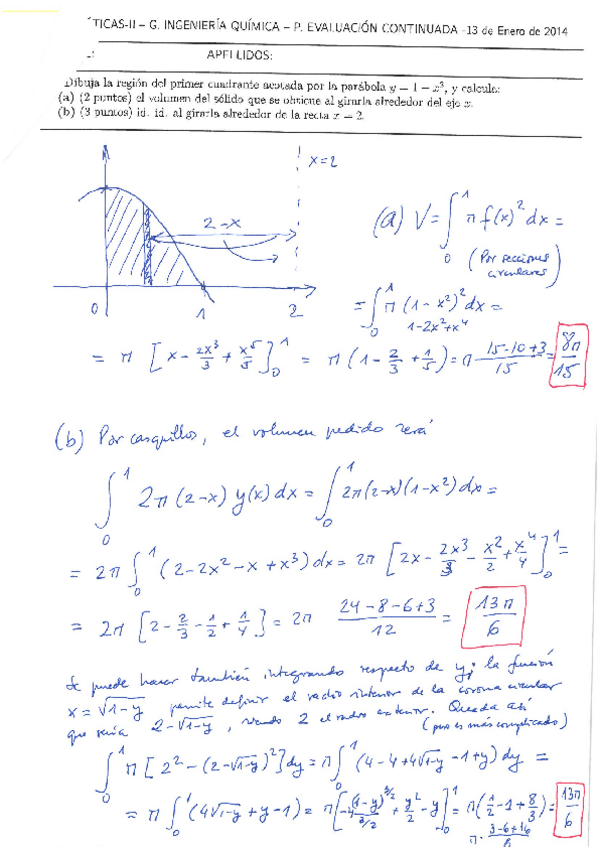 TICAS-II – G. INGENIERÍA QUÍMICA – P. EVALUACIÓN CONTINUADA -13 de Enero de 2014
APELLIDOS:
Dibuja la región del primer cuadrante acotada por la parábola y = 1 − x², y calcula:
(a) (2 puntos) el volumen del sólido que se obtiene al girarla alrededor del eje x.
(b) (3 puntos) id. id. al girarla alrededor de la recta x = 2
x=2
2-x
0 1 2
(a) V = ∫₀¹ π f(x)² dx =
(Por secciones circulares)
= ∫₀¹ π (1-x²)² dx =
1-2x²+x⁴
= π [x - 2x³/3 + x⁵/5]₀¹ = π (1 - 2/3 + 1/5) = π (15-10+3)/15 = 8π/15
(b) Por casquillos, el volumen pedido será
∫₀¹ 2π (2-x) y(x) dx = ∫₀¹ 2π(2-x)(1-x²) dx =
= 2π ∫₀¹ (2-2x²-x+x³) dx = 2π [2x - 2x³/3 - x²/2 + x⁴/4]₀¹ =
= 2π [2 - 2/3 - 1/2 + 1/4] = 2π (24-8-6+3)/12 = 13π/6
Se puede hacer también integrando respecto de y; la función
x = √(1-y) permite definir el radio interior de la corona circular
que sería 2-√(1-y), siendo 2 el radio exterior. Queda así
(pero es más complicado)
∫₀¹ π [2² - (2-√(1-y))²] dy = π ∫₀¹ (4-4+4√(1-y) -1+y) dy =
= π ∫₀¹ (4√(1-y) + y - 1) = π [-4 (1-y)^(3/2)/(3/2) + y²/2 - y]₀¹ = π (1/2 - 1 + 8/3) = 13π/6
π · (3-6+16)/6